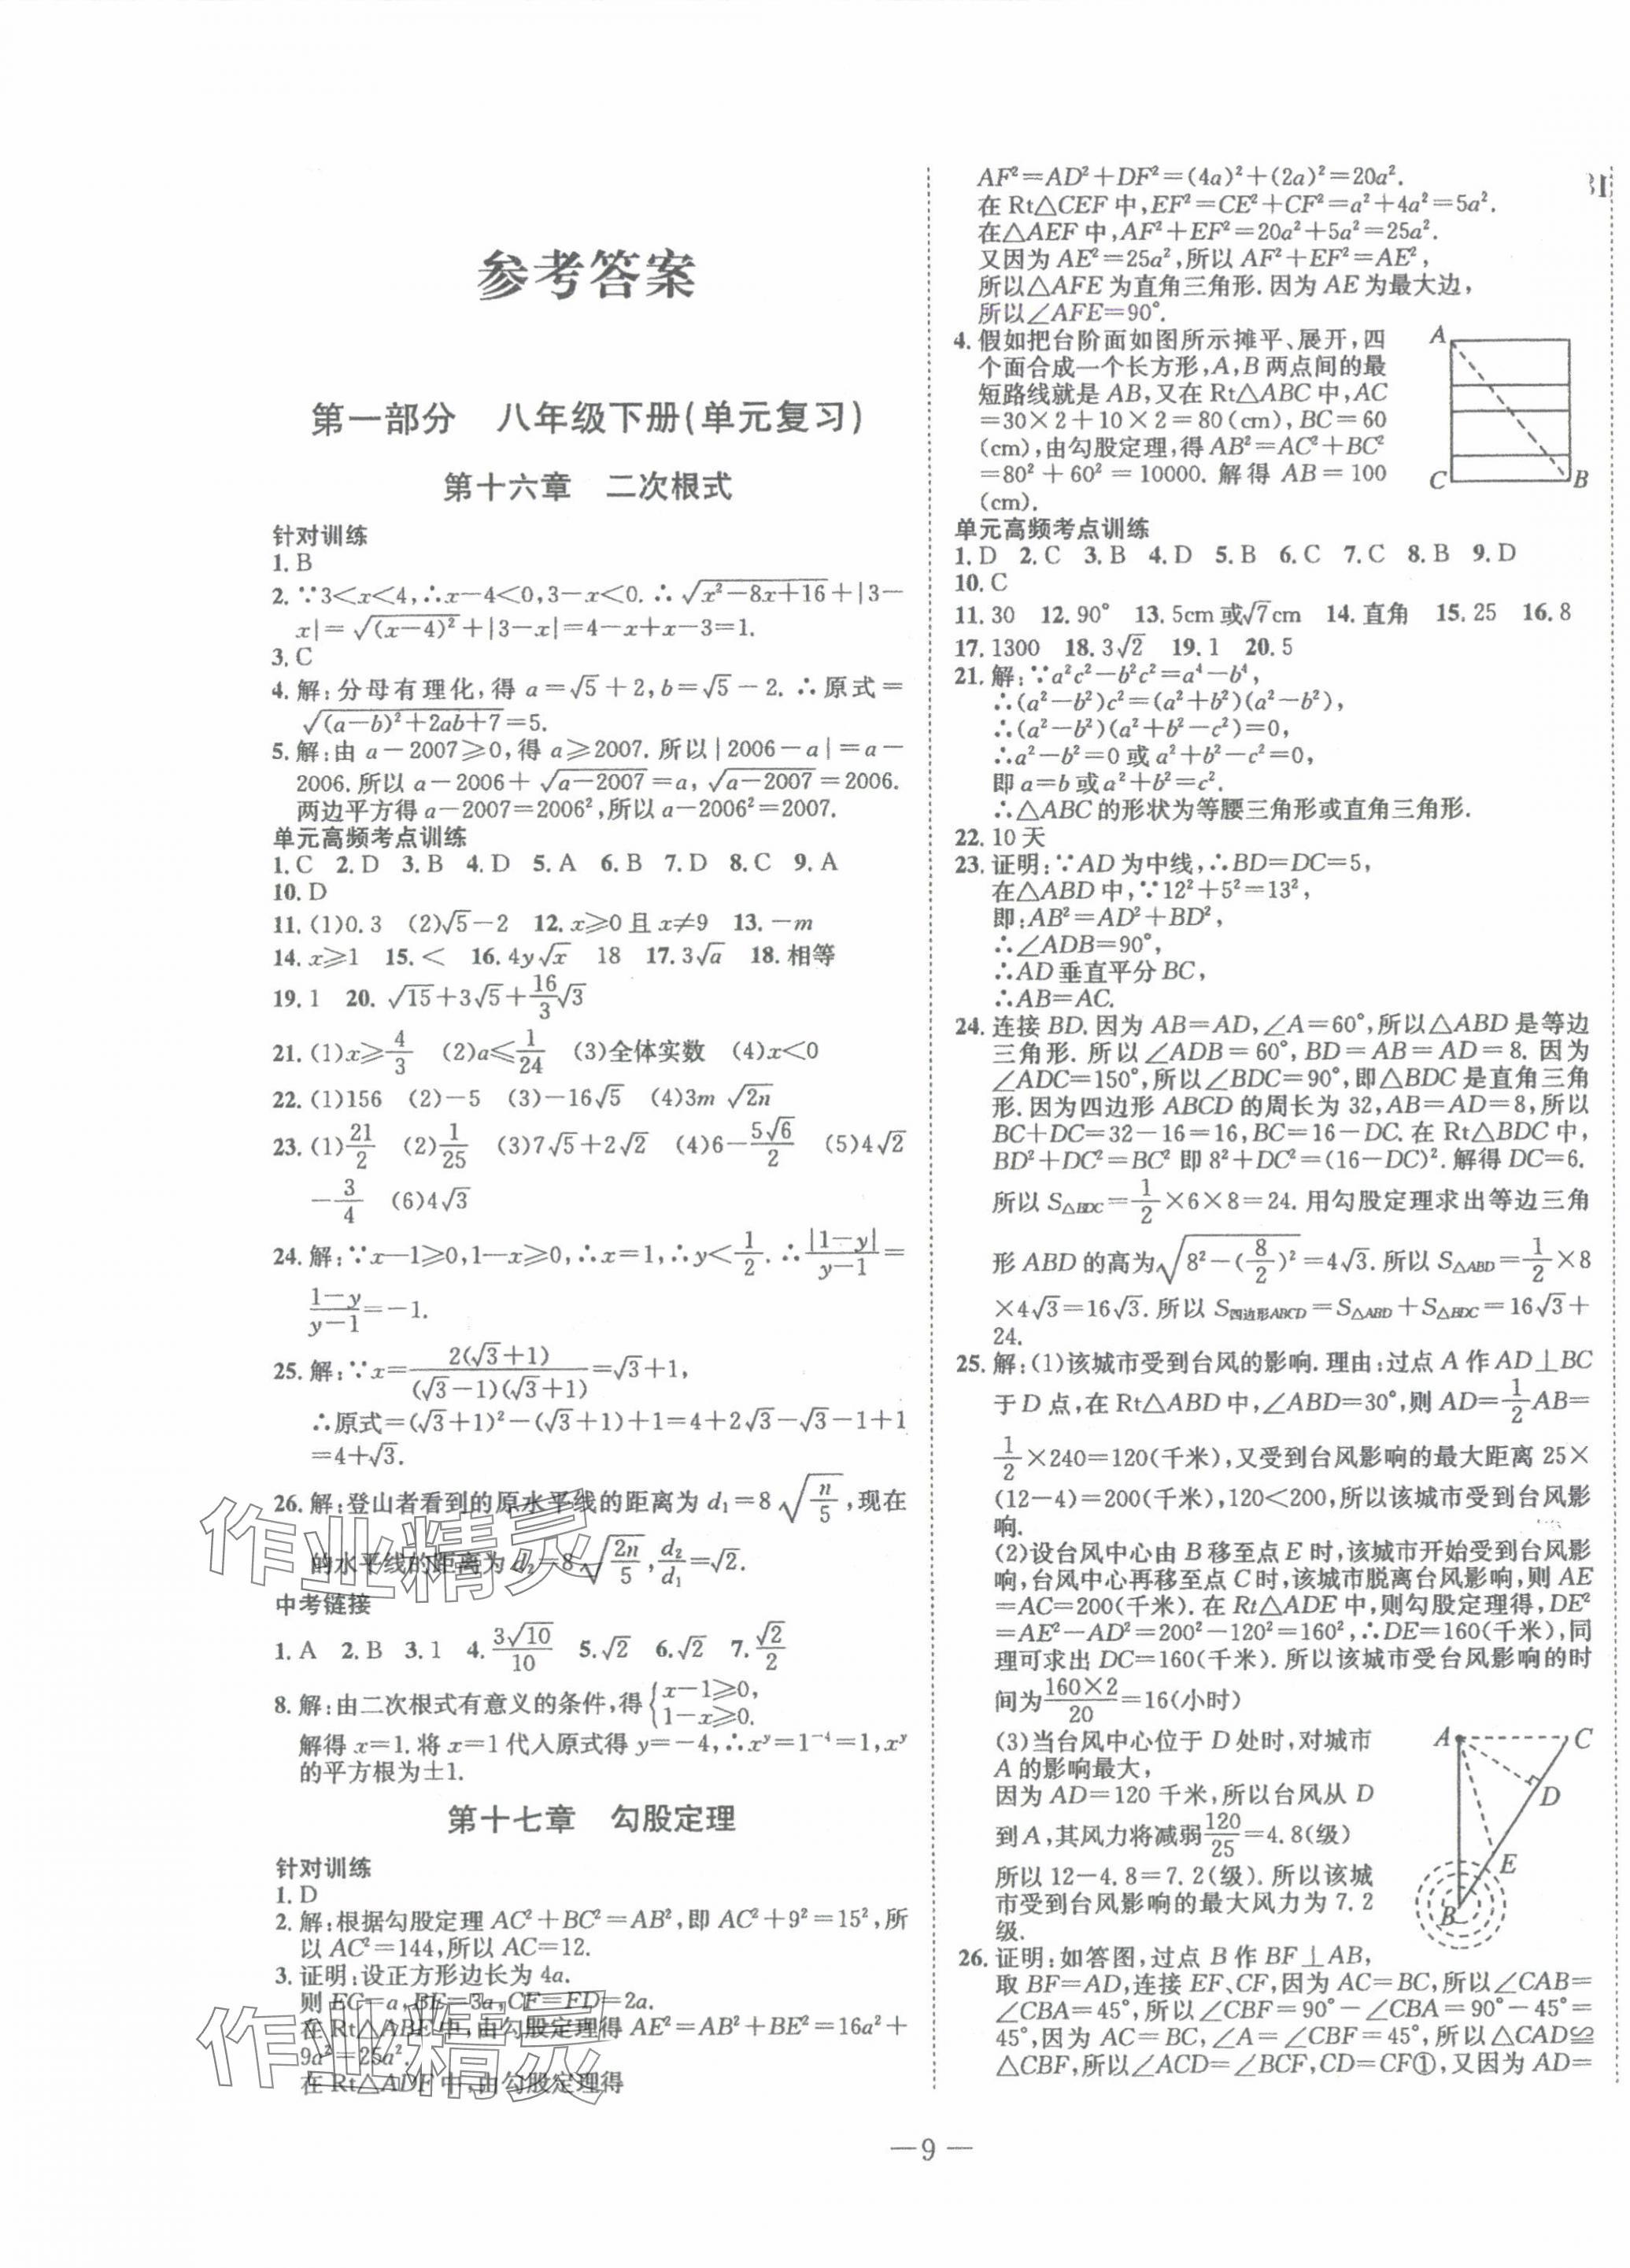 参考答案
第一部分 八年级下册(单元复习)
第十六章 二次根式
针对训练
1. B
2. ∵3<x<4,∴x-4<0,3-x<0. ∴√(x²-8x+16)+|3-
x|=√((x-4)²)+|3-x|=4-x+x-3=1.
3. C
4. 解:分母有理化,得 a=√5+2,b=√5-2. ∴原式=
√((a-b)²+2ab+7)=5.
5. 解:由 a-2007⩾0,得 a⩾2007. 所以|2006-a|=a-
2006. 所以 a-2006+√(a-2007)=a,√(a-2007)=2006.
两边平方得 a-2007=2006²,所以 a-2006²=2007.
单元高频考点训练
1. C 2. D 3. B 4. D 5. A 6. B 7. D 8. C 9. A
10. D
11. (1)0.3 (2)√5-2 12. x⩾0 且 x≠9 13. -m
14. x⩾1 15. < 16. 4y√x 18 17. 3√a 18. 相等
19. 1 20. √15+3√5+16/3√3
21. (1)x⩾4/3 (2)a⩽1/24 (3)全体实数 (4)x<0
22. (1)156 (2)-5 (3)-16√5 (4)3m√(2n)
23. (1)21/2 (2)1/25 (3)7√5+2√2 (4)6-5√6/2 (5)4√2
-3/4 (6)4√3
24. 解:∵x-1⩾0,1-x⩾0,∴x=1,∴y<1/2. ∴|1-y|/(y-1)=
(1-y)/(y-1)=-1.
25. 解:∵x=2(√3+1)/((√3-1)(√3+1))=√3+1,
∴原式=(√3+1)²-(√3+1)+1=4+2√3-√3-1+1
=4+√3.
26. 解:登山者看到的原水平线的距离为 d₁=8√(n/5),现在
的水平线的距离为 d₂=8√(2n/5),d₂/d₁=√2.
中考链接
1. A 2. B 3. 1 4. 3√10/10 5. √2 6. √2 7. √2/2
8. 解:由二次根式有意义的条件,得{x-1⩾0,
1-x⩾0.
解得 x=1. 将 x=1 代人原式得 y=-4,∴xʸ=1⁻⁴=1,xʸ
的平方根为±1.
第十七章 勾股定理
针对训练
1. D
2. 解:根据勾股定理 AC²+BC²=AB²,即 AC²+9²=15²,所
以 AC²=144,所以 AC=12.
3. 证明:设正方形边长为 4a.
则 EC=a,BE=3a,CF=FD=2a.
在 Rt△ABE 中,由勾股定理得 AE²=AB²+BE²=16a²+
9a²=25a².
在 Rt△ADF 中,由勾股定理得
AF²=AD²+DF²=(4a)²+(2a)²=20a².
在 Rt△CEF 中,EF²=CE²+CF²=a²+4a²=5a².
在△AEF 中,AF²+EF²=20a²+5a²=25a².
又因为 AE²=25a²,所以 AF²+EF²=AE²,
所以△AFE 为直角三角形. 因为 AE 为最大边,
所以∠AFE=90°.
4. 假如把台阶面如图所示摊平、展开,四
个面合成一个长方形,A,B 两点间的最
短路线就是 AB,又在 Rt△ABC 中,AC
=30×2+10×2=80(cm),BC=60
(cm),由勾股定理,得 AB²=AC²+BC²
=80²+60²=10000. 解得 AB=100
(cm).
A
C
B
单元高频考点训练
1. D 2. C 3. B 4. D 5. B 6. C 7. C 8. B 9. D
10. C
11. 30 12. 90° 13. 5cm 或√7cm 14. 直角 15. 25 16. 8
17. 1300 18. 3√2 19. 1 20. 5
21. 解:∵a²c²-b²c²=a⁴-b⁴,
∴(a²-b²)c²=(a²+b²)(a²-b²),
∴(a²-b²)(a²+b²-c²)=0,
∴a²-b²=0 或 a²+b²-c²=0,
即 a=b 或 a²+b²=c².
∴△ABC 的形状为等腰三角形或直角三角形.
22. 10 天
23. 证明:∵AD 为中线,∴BD=DC=5,
在△ABD 中,∵12²+5²=13²,
即:AB²=AD²+BD²,
∴∠ADB=90°,
∴AD 垂直平分 BC,
∴AB=AC.
24. 连接 BD. 因为 AB=AD,∠A=60°,所以△ABD 是等边
三角形. 所以∠ADB=60°,BD=AB=AD=8. 因为
∠ADC=150°,所以∠BDC=90°,即△BDC 是直角三角
形. 因为四边形 ABCD 的周长为 32,AB=AD=8,所以
BC+DC=32-16=16,BC=16-DC. 在 Rt△BDC 中,
BD²+DC²=BC² 即 8²+DC²=(16-DC)². 解得 DC=6.
所以 S△BDC=1/2×6×8=24. 用勾股定理求出等边三角
形 ABD 的高为√(8²-(8/2)²)=4√3. 所以 S△ABD=1/2×8
×4√3=16√3. 所以 S四边形ABCD=S△ABD+S△BDC=16√3+
24.
25. 解:(1)该城市受到台风的影响. 理由:过点 A 作 AD⊥BC
于 D 点,在 Rt△ABD 中,∠ABD=30°,则 AD=1/2AB=
1/2×240=120(千米),又受到台风影响的最大距离 25×
(12-4)=200(千米),120<200,所以该城市受到台风影
响.
(2)设台风中心由 B 移至点 E 时,该城市开始受到台风影
响,台风中心再移至点 C 时,该城市脱离台风影响,则 AE
=AC=200(千米). 在 Rt△ADE 中,则勾股定理得,DE²
=AE²-AD²=200²-120²=160²,∴DE=160(千米),同
理可求出 DC=160(千米). 所以该城市受台风影响的时
间为160×2/20=16(小时)
(3)当台风中心位于 D 处时,对城市
A 的影响最大,
因为 AD=120 千米,所以台风从 D
到 A,其风力将减弱120/25=4.8(级)
所以 12-4.8=7.2(级). 所以该城
市受到台风影响的最大风力为 7.2
级.
A
C
D
E
B
26. 证明:如答图,过点 B 作 BF⊥AB,
取 BF=AD,连接 EF、CF,因为 AC=BC,所以∠CAB=
∠CBA=45°,所以∠CBF=90°-∠CBA=90°-45°=
45°,因为 AC=BC,∠A=∠CBF=45°,所以△CAD≌
△CBF,所以∠ACD=∠BCF,CD=CF①,又因为 AD=
—9—
作业精灵
作业精灵